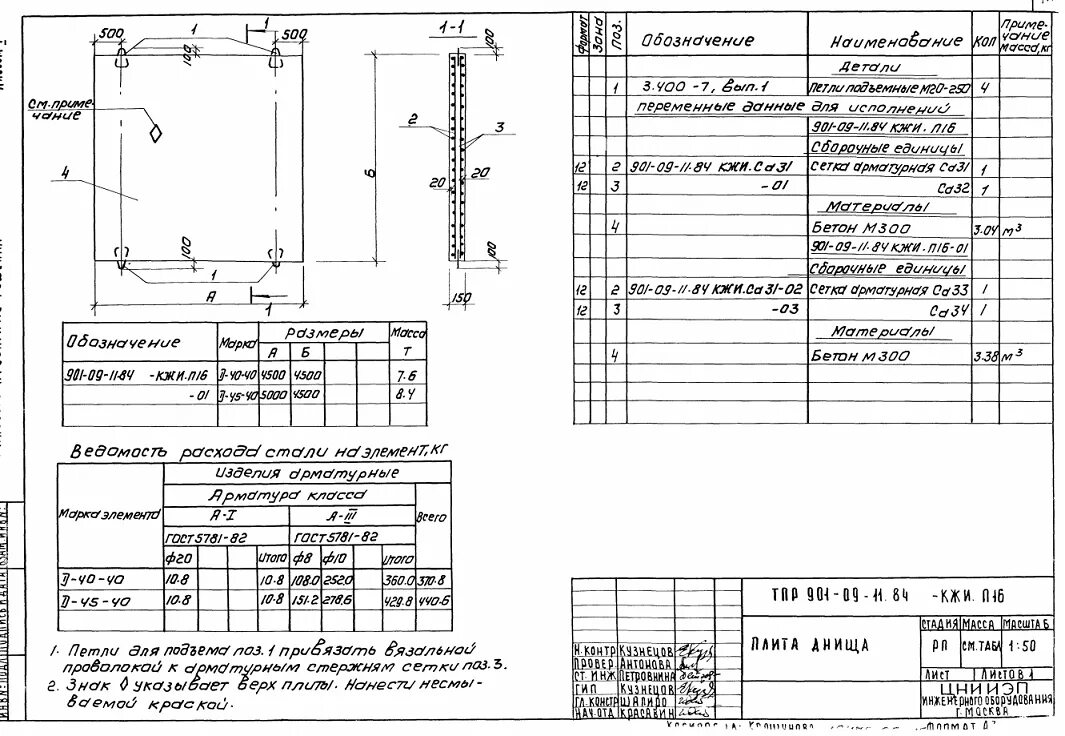 500
1
1
500
100
См. примечание
4
100
1
А
1
1-1
100
Б
2
3
20
20
100
150
Обозначение
Марка
Размеры
Масса
А
Б
Т
901-09-11.84 -КЖИ.П16
Д-40-40
4500
4500
7.6
-01
Д-45-40
5000
4500
8.4
Ведомость расхода стали на элемент, кг
Марка элемента
Изделия арматурные
Арматура класса
Всего
А-I
А-III
ГОСТ 5781-82
ГОСТ 5781-82
ф20
Итого
ф8
ф10
итого
Д-40-40
10.8
10.8
108.0
252.0
360.0
370.8
Д-45-40
10.8
10.8
151.2
278.6
429.8
440.6
1. Петли для подъема поз.1 привязать вязальной
проволокой к арматурным стержням сетки поз.3.
2. Знак ◊ указывает верх плиты. Нанести несмы-
ваемой краской.
Формат
Зона
Поз.
Обозначение
Наименование
Кол
Приме-
чание
масса, кг
Детали
1
3.400-7, Вып.1
Петли подъемные М20-250
4
переменные данные для исполнений
901-09-11.84 КЖИ. П16
Сборочные единицы
12
2
901-09-11.84 КЖИ.Са31
Сетка арматурная Са31
1
12
3
-01
Са32
1
Материалы
4
Бетон М300
3.04
м³
901-09-11.84 КЖИ.П16-01
Сборочные единицы
12
2
901-09-11.84 КЖИ.Са31-02
Сетка арматурная Са33
1
12
3
-03
Са34
1
Материалы
4
Бетон М300
3.38
м³
ТПР 901-09-11.84 -КЖИ. П16
Плита днища
Стадия
Масса
Масштаб
РП
См.табл
1:50
Лист
Листов 1
ЦНИИЭП
инженерного оборудования
г. Москва
Н.контр
Кузнецов
Провер
Антонова
Ст. инж
Петровнина
ГИП
Кузнецов
Гл.констр
Шапиро
Нач.отд
Красавин
Формат А3